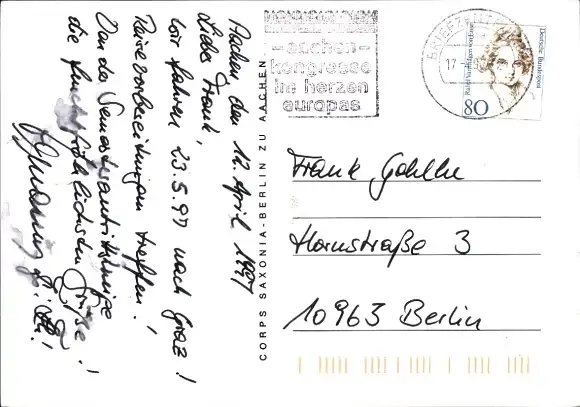 Aachen den 12. April 1997
Lieber Frank,
wir fahren 23.5.97 nach Graz!
Reisevorbereitungen treffen!
Von der Semesterantrittskneipe
die feuchtfröhlichsten Grüße!
CORPS SAXONIA-BERLIN ZU AACHEN
-aachen-
kongresse
im herzen
europas
BRIEFZENTRUM
17.-4.97
Deutsche Bundespost
Rahel Varnhagen von Ense
80
Frank Gohlke
Hornstraße 3
10963 Berlin